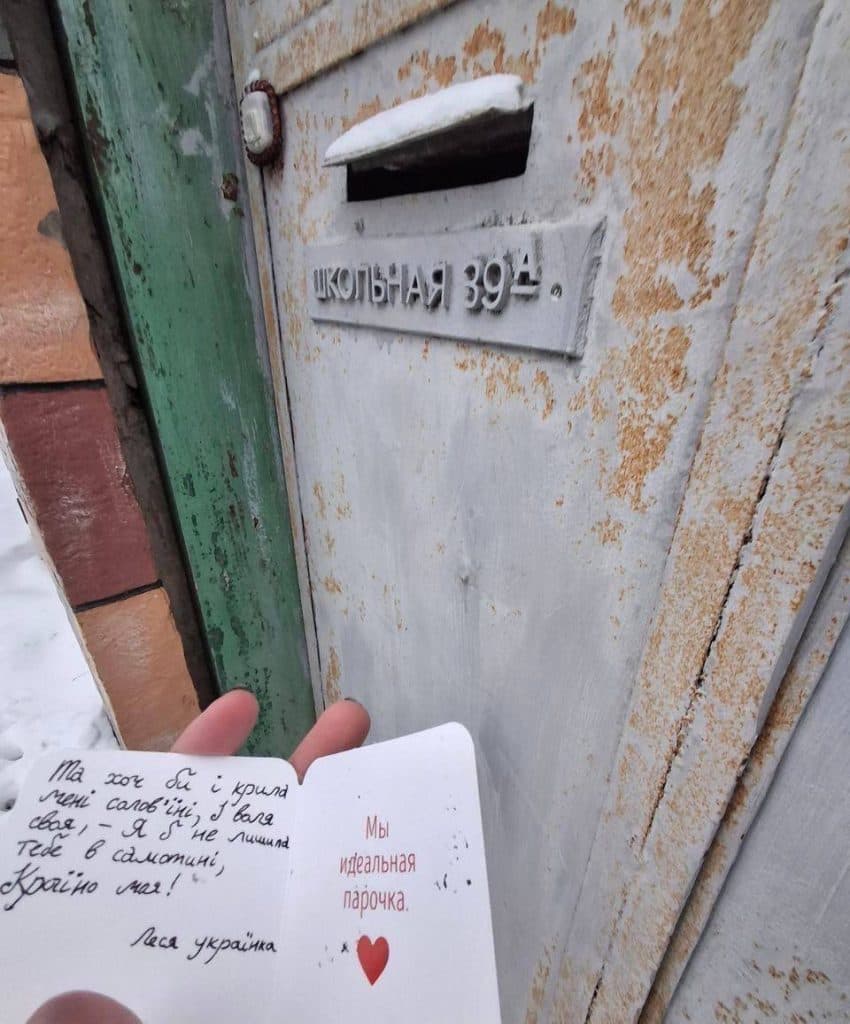 ШКОЛЬНАЯ 39А.
Та хоч би і крила
мені солов'їні, І воля
своя, – Я б не лишила
тебе в самотині,
Країно моя!
Леся українка
Мы
идеальная
парочка.